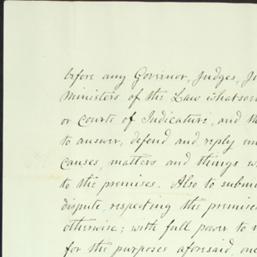 before any Governor, Judges, J
Ministers of the Law whatsoe
or Courts of Judicature, and th
to answer, defend and reply un
causes, matters and things w
to the premises. Also to submi
dispute, respecting the premise
otherwise; with full power to
for the purposes aforesaid, one